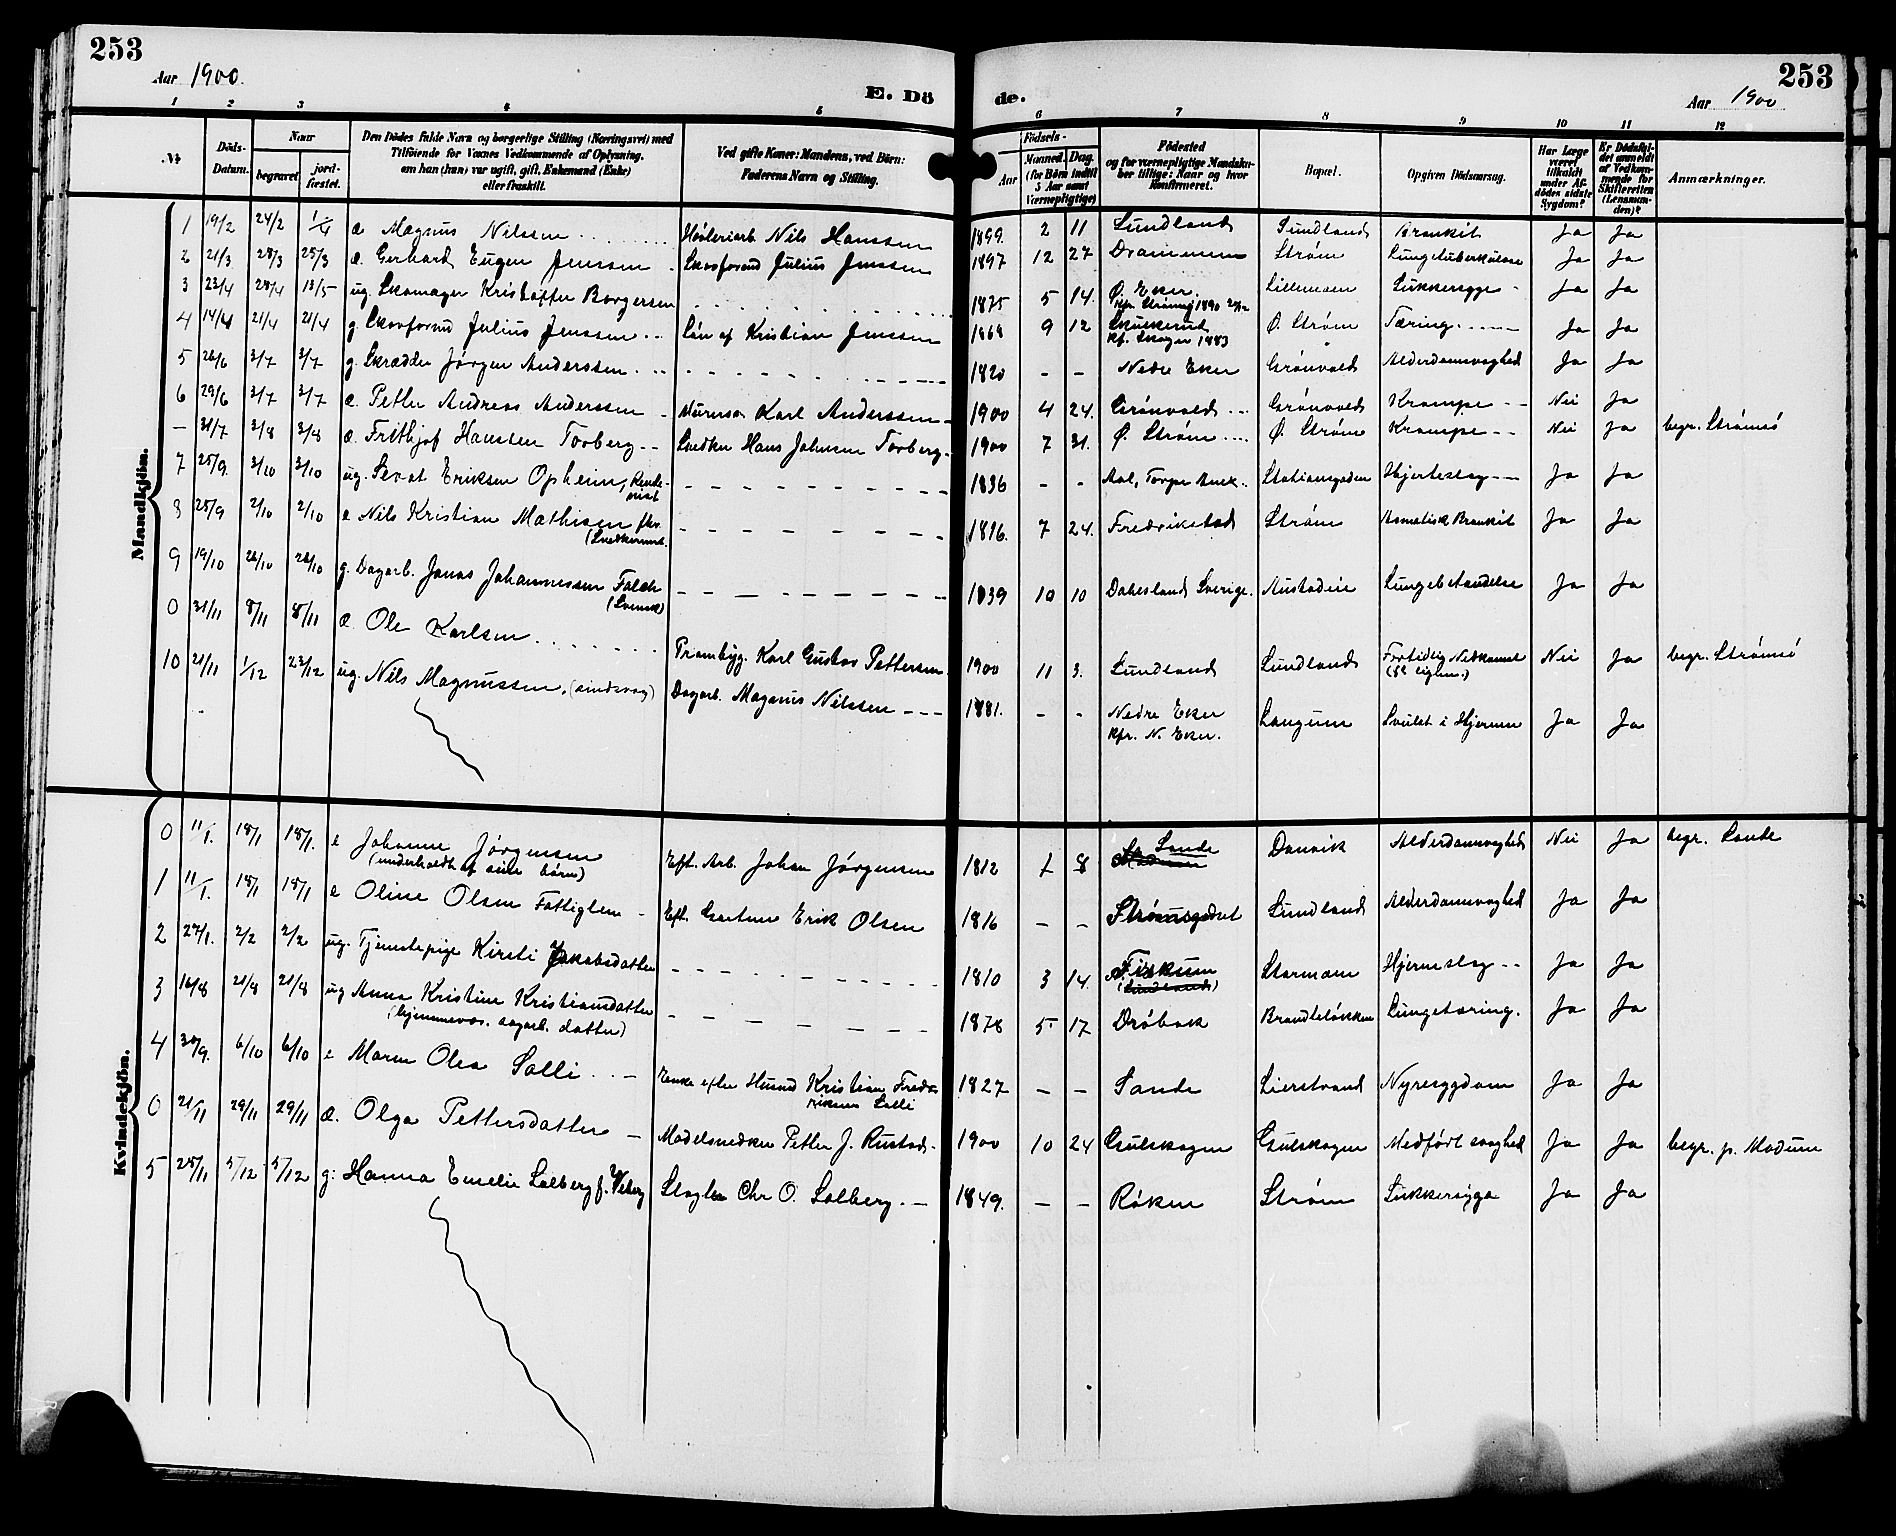 253
Aar 1900.
E. Dö
de.
253
Aar 1900
1 2 3 4 5
6 7 8 9 10 11 12
No
Döds-Datum.
Naar
begravet
jord-fæstet.
Den Dödes fulde Navn og borgerlige Stilling (Næringsvei) med
Tilföiende for Voxnes Vedkommende af Oplysning,
om han (hun) var ugift, gift, Enkemand (Enke)
eller fraskilt.
Ved gifte Koner: Mandens, ved Börn:
Faderens Navn og Stilling.
Födsels-
Aar
Maaned. Dag.
(for Börn indtil
5 Aar samt
Værnepligtige)
Födested
og for værnepligtige Mandskaber tillige: Naar og hvor
konfirmeret.
Bopæl.
Opgiven Dödsaarsag.
Har Læge
været
tilkaldt
under Afdödes sidste
Sygdom?
Er Dödsfaldet anmeldt
af Vedkommende for
Skifteretten
(Lensmanden)?
Anmærkninger.
Mandkjön.
1 19/2 24/2 1/4 æ Magnus Nilssen Høvleriarb. Nils Hanssen 1899. 2 11 Lundland Lundland Bronkit Ja Ja
2 21/3 25/3 25/3 æ. Gerhard Eugen Jenssen Skovforvd Julius Jenssen 1897 12 27 Drammen Strøm Lungetuberkulose Ja Ja
3 22/4 28/4 13/5 ug. Skomager Kristoffer Borgersen 1875 5 14. Ø. Eker. Lillemoen Sukkersyge Ja Ja
4 14/4 21/4 21/4 g. Skovforvd Julius Jenssen Søn af Kristian Jenssen 1868 9 12 Kf. Skoger 1883 Ø. Strøm Tæring Ja Ja
5 26/6 3/7 3/7 g. Skrædder Jørgen Anderssen 1820 - - Nedre Eker Grønvold Alderdomsvaghed Ja Ja
6 29/6 3/7 3/7 æ. Petter Andreas Anderssen Murmes Karl Anderssen 1900 4 24. Grønvold Grønvold Krampe Nei Ja
- 31/7 3/8 3/8 æ. Frithjof Hansten Torberg Snedker Hans Johnsen Torberg 1900 7 31. Ø. Strøm Ø. Strøm Krampe Nei Ja begr. Strømsö
7 25/9. 3/10 3/10 ug. Sevat Eriksen Opheim, Rende- 1836 - - Aal, Torpe Anex. Stationsgaden Hjerteslag Ja Ja
8 25/9 2/10 2/10 e Nils Kristian Mathisen fhv. 1816. 7 24. Fredrikstad Strøm Asmatisk Bronkit Ja Ja
(Snedkermt.
9 19/10 26/10 26/10 g. Dagarb. Jonas Johannessen Falch 1839 10 10 Dalesland Sverige. Austadeie Lungebetændelse Ja Ja
(Svensk)
0 31/11 8/11 8/11 æ. Ole Karlsen Prambyg. Karl Gustav Pettersen 1900 11 3. Lundland Lundland Fortidlig Nedkomst Nei Ja begr. Strømsö
10 21/11 1/12 23/12 ug. Nils Magnussen. (sindsvag) Dagarb. Magnus Nilssen 1881. - - Nedre Eker Langum Svulst i Hjernen Ja Ja
Kfr. N. Eker.
Kvindekjön.
0 11/1. 18/1 18/1. e Johanne Jørgensen Eft. Arb. Johan Jørgensen 1812 1 8 Sande Danvik Alderdomsvaghed Nei Ja begr. Sande
(underholdt af sine børn)
1 11/1 18/1 18/1 e Oline Olsen Fattiglem Eft. Gartner Erik Olsen 1816 - - Strømsgodset Lundland Alderdomsvaghed Ja Ja
2 27/1. 2/2 2/2 ug. Tjenstepige Kirsti Jakobsdatter 1810 3 14. Fiskum Stormoen Hjerneslag Ja Ja
(Lundland)
3 16/8 21/8 21/8 ug Anna Kristine Kristiansdatter 1878 5 17 Drøbak Brandteløkken Lungetæring. Ja Ja
(hjemmevær. dagarb. datter)
4 30/9. 6/10 6/10 e Maren Olea Solli Enke efter Husmd Kristian Fred- 1827 - - Sande Lierstrand Nyresygdom Ja Ja
riksen Solli
0 21/11 29/11 29/11 æ. Olga Pettersdatter Modelsnedker Petter J. Rustad 1900 10 24 Gulskogen Gulskogen Medført svaghed Ja Ja begr. p. Modum
5 25/11 5/12 5/12 g: Hanna Emelie Solberg f. Viberg Slagter Chr O. Solberg 1849. - - Røken Strøm Sukkersyge Ja Ja